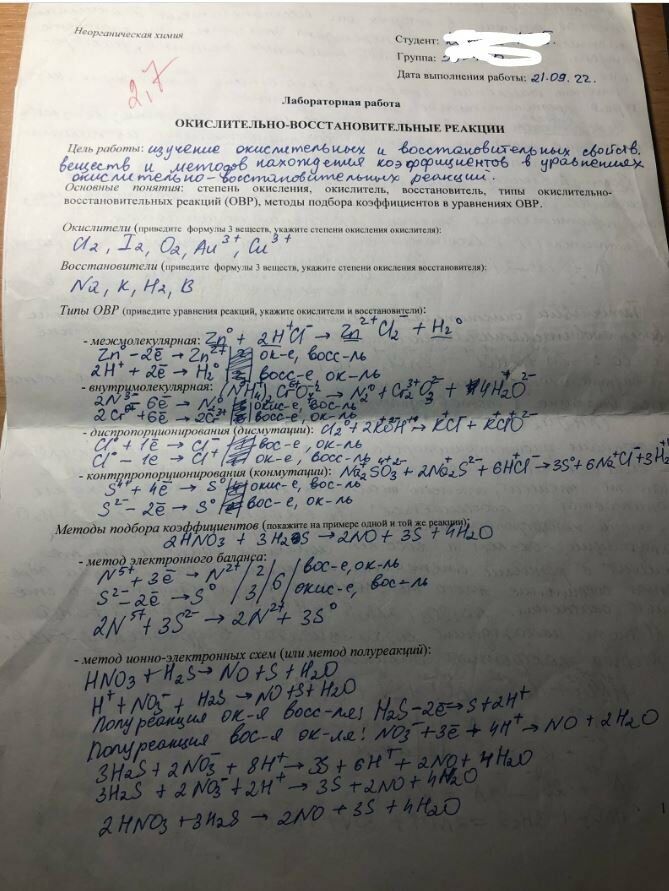 Неорганическая химия
Студент:
Группа:
Дата выполнения работы: 21.09.22.
2,7
Лабораторная работа
ОКИСЛИТЕЛЬНО-ВОССТАНОВИТЕЛЬНЫЕ РЕАКЦИИ
Цель работы: изучение окислительных и восстановительных свойств
веществ и методов нахождения коэффициентов в уравнениях
окислительно-восстановительных реакций.
Основные понятия: степень окисления, окислитель, восстановитель, типы окислительно-
восстановительных реакций (ОВР), методы подбора коэффициентов в уравнениях ОВР.
Окислители (приведите формулы 3 веществ, укажите степени окисления окислителя):
Cl2, I2, O2, Au³⁺, Cu³⁺
Восстановители (приведите формулы 3 веществ, укажите степени окисления восстановителя):
Na, K, H2, B
Типы ОВР (приведите уравнения реакций, укажите окислители и восстановители):
- межмолекулярная: Zn⁰ + 2H⁺Cl⁻ → Zn²⁺Cl2⁻ + H2⁰
Zn⁰ - 2ē → Zn²⁺ ок-е, восс-ль
2H⁺ + 2ē → H2⁰ восс-е, ок-ль
- внутримолекулярная: (NH4)2Cr2O7 → N2⁰ + Cr2³⁺O3²⁻ + 4H2O²⁻
2N³⁻ - 6ē → N2⁰ окис-е, вос-ль
2Cr⁶⁺ + 6ē → 2Cr³⁺ вос-е, ок-ль
- диспропорционирования (дисмутации): Cl2⁰ + 2KOH → KCl + KClO
Cl⁰ + 1ē → Cl⁻ вос-е, ок-ль
Cl⁰ - 1ē → Cl⁺ ок-е, восс-ль
- контрпропорционирования (конмутации): Na2SO3 + 2Na2S²⁻ + 6HCl → 3S⁰ + 6Na⁺Cl⁻ + 3H2
S⁴⁺ + 4ē → S⁰ окис-е, вос-ль
S²⁻ - 2ē → S⁰ вос-е, ок-ль
Методы подбора коэффициентов (покажите на примере одной и той же реакции):
2HNO3 + 3H2S → 2NO + 3S + 4H2O
- метод электронного баланса:
N⁵⁺ + 3ē → N²⁺ / 2 / вос-е, ок-ль
S²⁻ - 2ē → S⁰ / 3 / 6 / окис-е, вос-ль
2N⁵⁺ + 3S²⁻ → 2N²⁺ + 3S⁰
- метод ионно-электронных схем (или метод полуреакций):
HNO3 + H2S → NO + S + H2O
H⁺ + NO3⁻ + H2S → NO + S + H2O
Полуреакция ок-я восс-ля: H2S - 2ē → S + 2H⁺
Полуреакция вос-я ок-ля: NO3⁻ + 3ē + 4H⁺ → NO + 2H2O
3H2S + 2NO3⁻ + 8H⁺ → 3S + 6H⁺ + 2NO + 4H2O
3H2S + 2NO3⁻ + 2H⁺ → 3S + 2NO + 4H2O
2HNO3 + 3H2S → 2NO + 3S + 4H2O